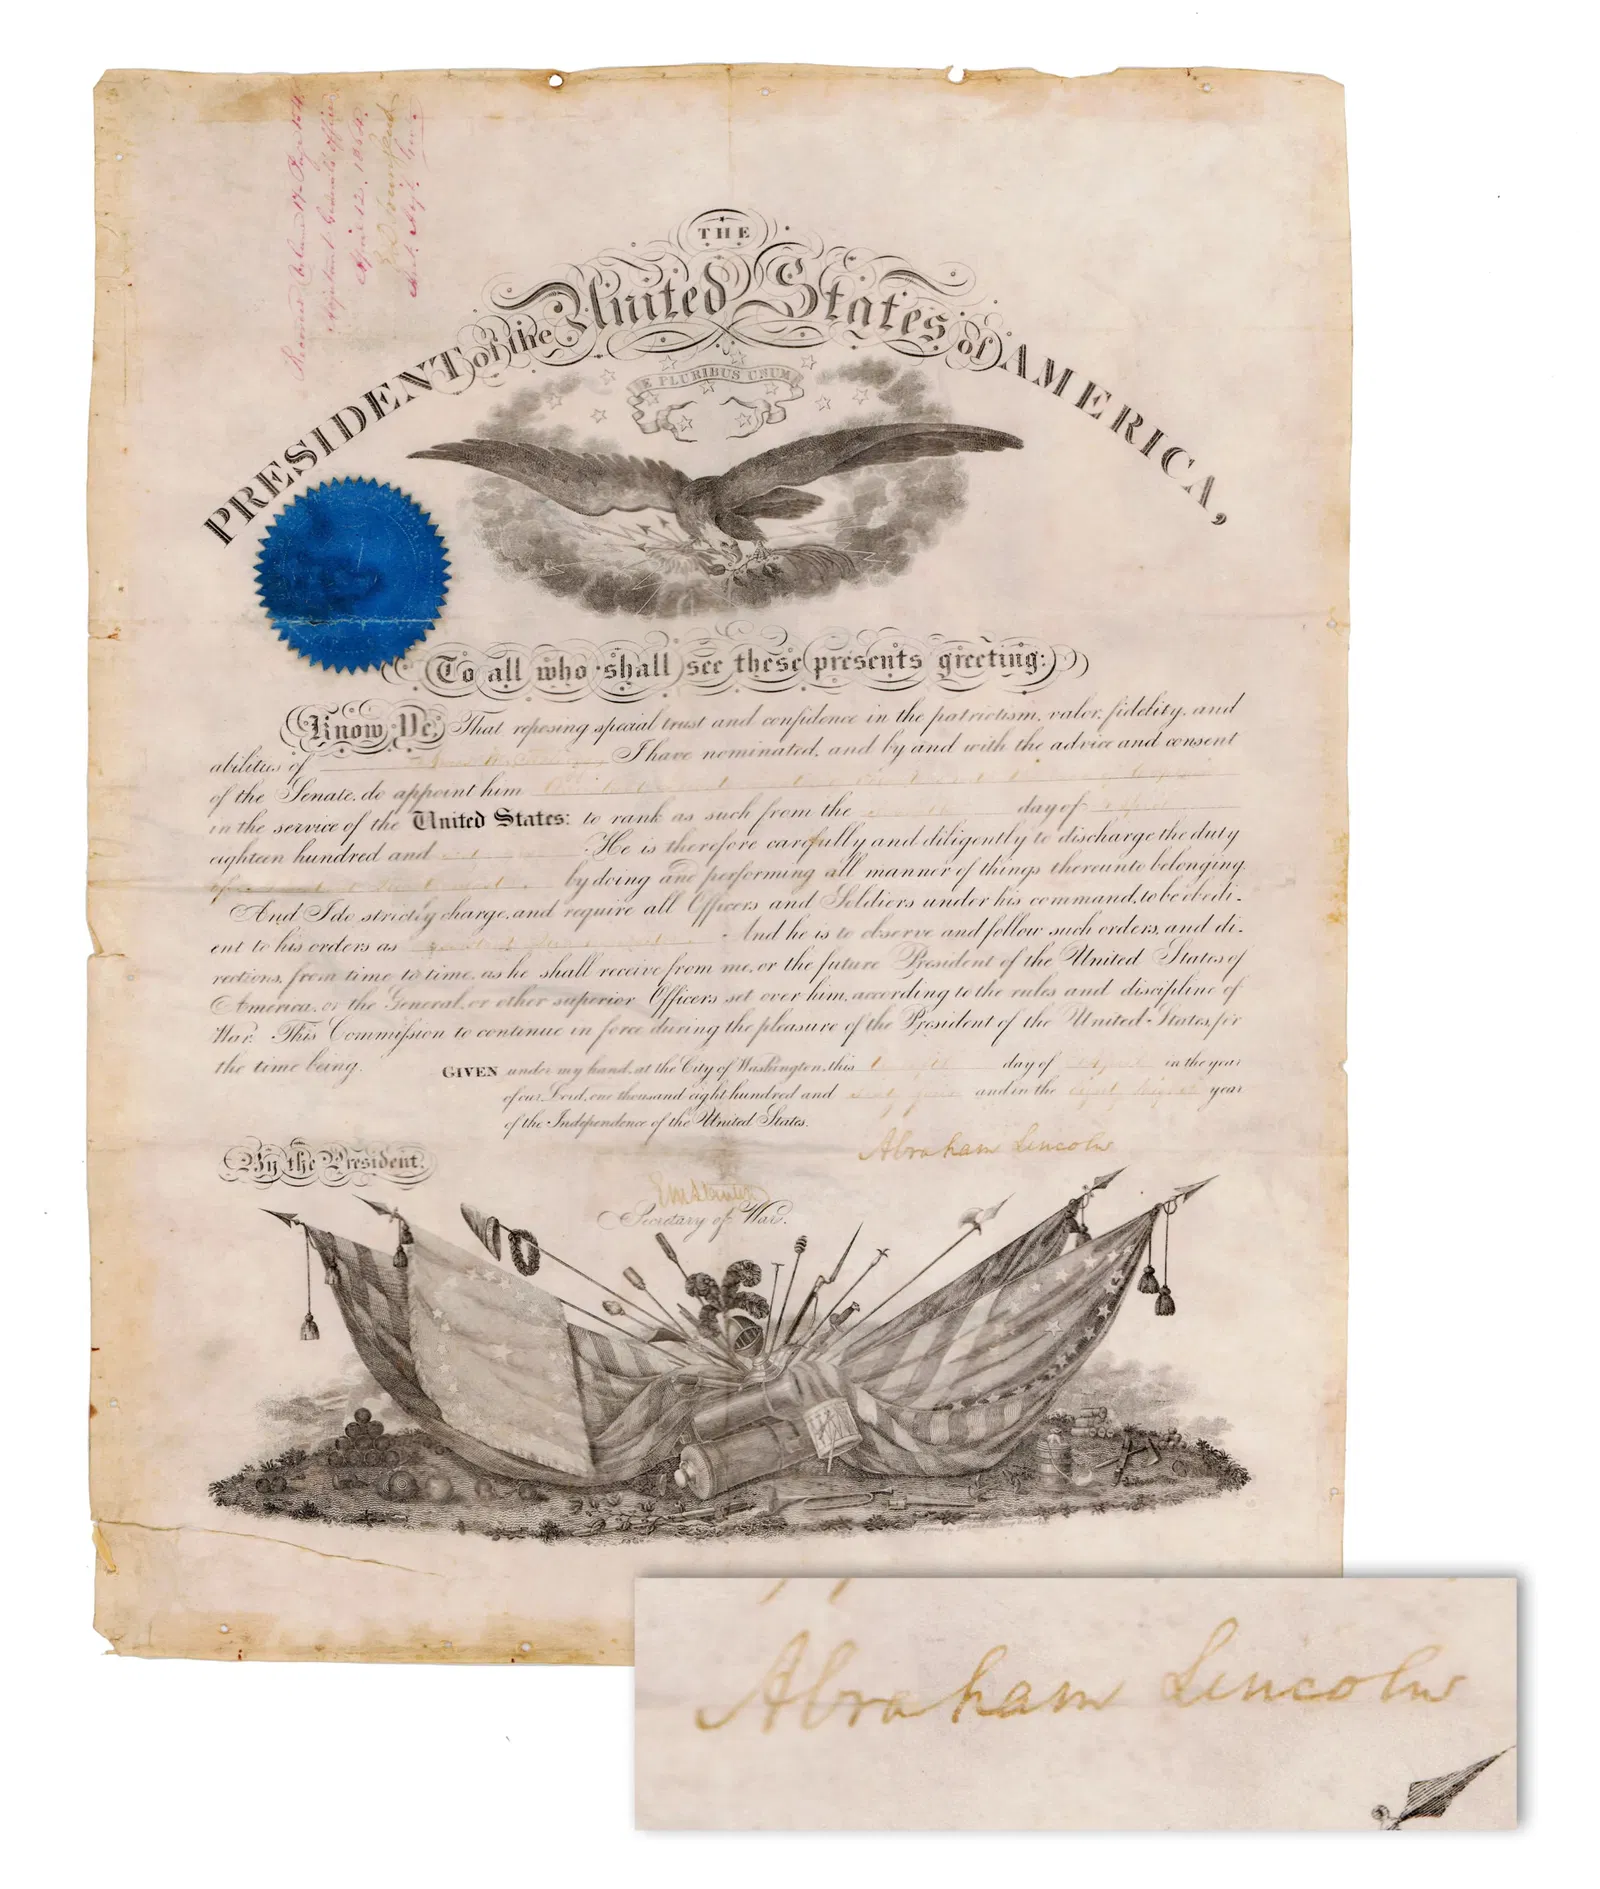 THE
PRESIDENT of the United States of AMERICA,
E PLURIBUS UNUM
To all who shall see these presents greeting:
Know Ye, That reposing special trust and confidence in the patriotism, valor, fidelity, and
abilities of I have nominated, and by and with the advice and consent
of the Senate, do appoint him
in the service of the United States: to rank as such from the day of April
eighteen hundred and He is therefore carefully and diligently to discharge the duty
of by doing and performing all manner of things thereunto belonging.
And I do strictly charge, and require all Officers and Soldiers under his command, to be obedi-
ent to his orders as And he is to observe and follow such orders, and di-
rections, from time to time, as he shall receive from me, or the future President of the United States of
America, or the General, or other superior Officers set over him, according to the rules and discipline of
War. This Commission to continue in force during the pleasure of the President of the United States, for
the time being.
GIVEN under my hand, at the City of Washington, this day of April in the year
of our Lord, one thousand eight hundred and sixty four and in the eighty eighth year
of the Independence of the United States.
Abraham Lincoln
By the President.
Secretary of War.
Abraham Lincoln